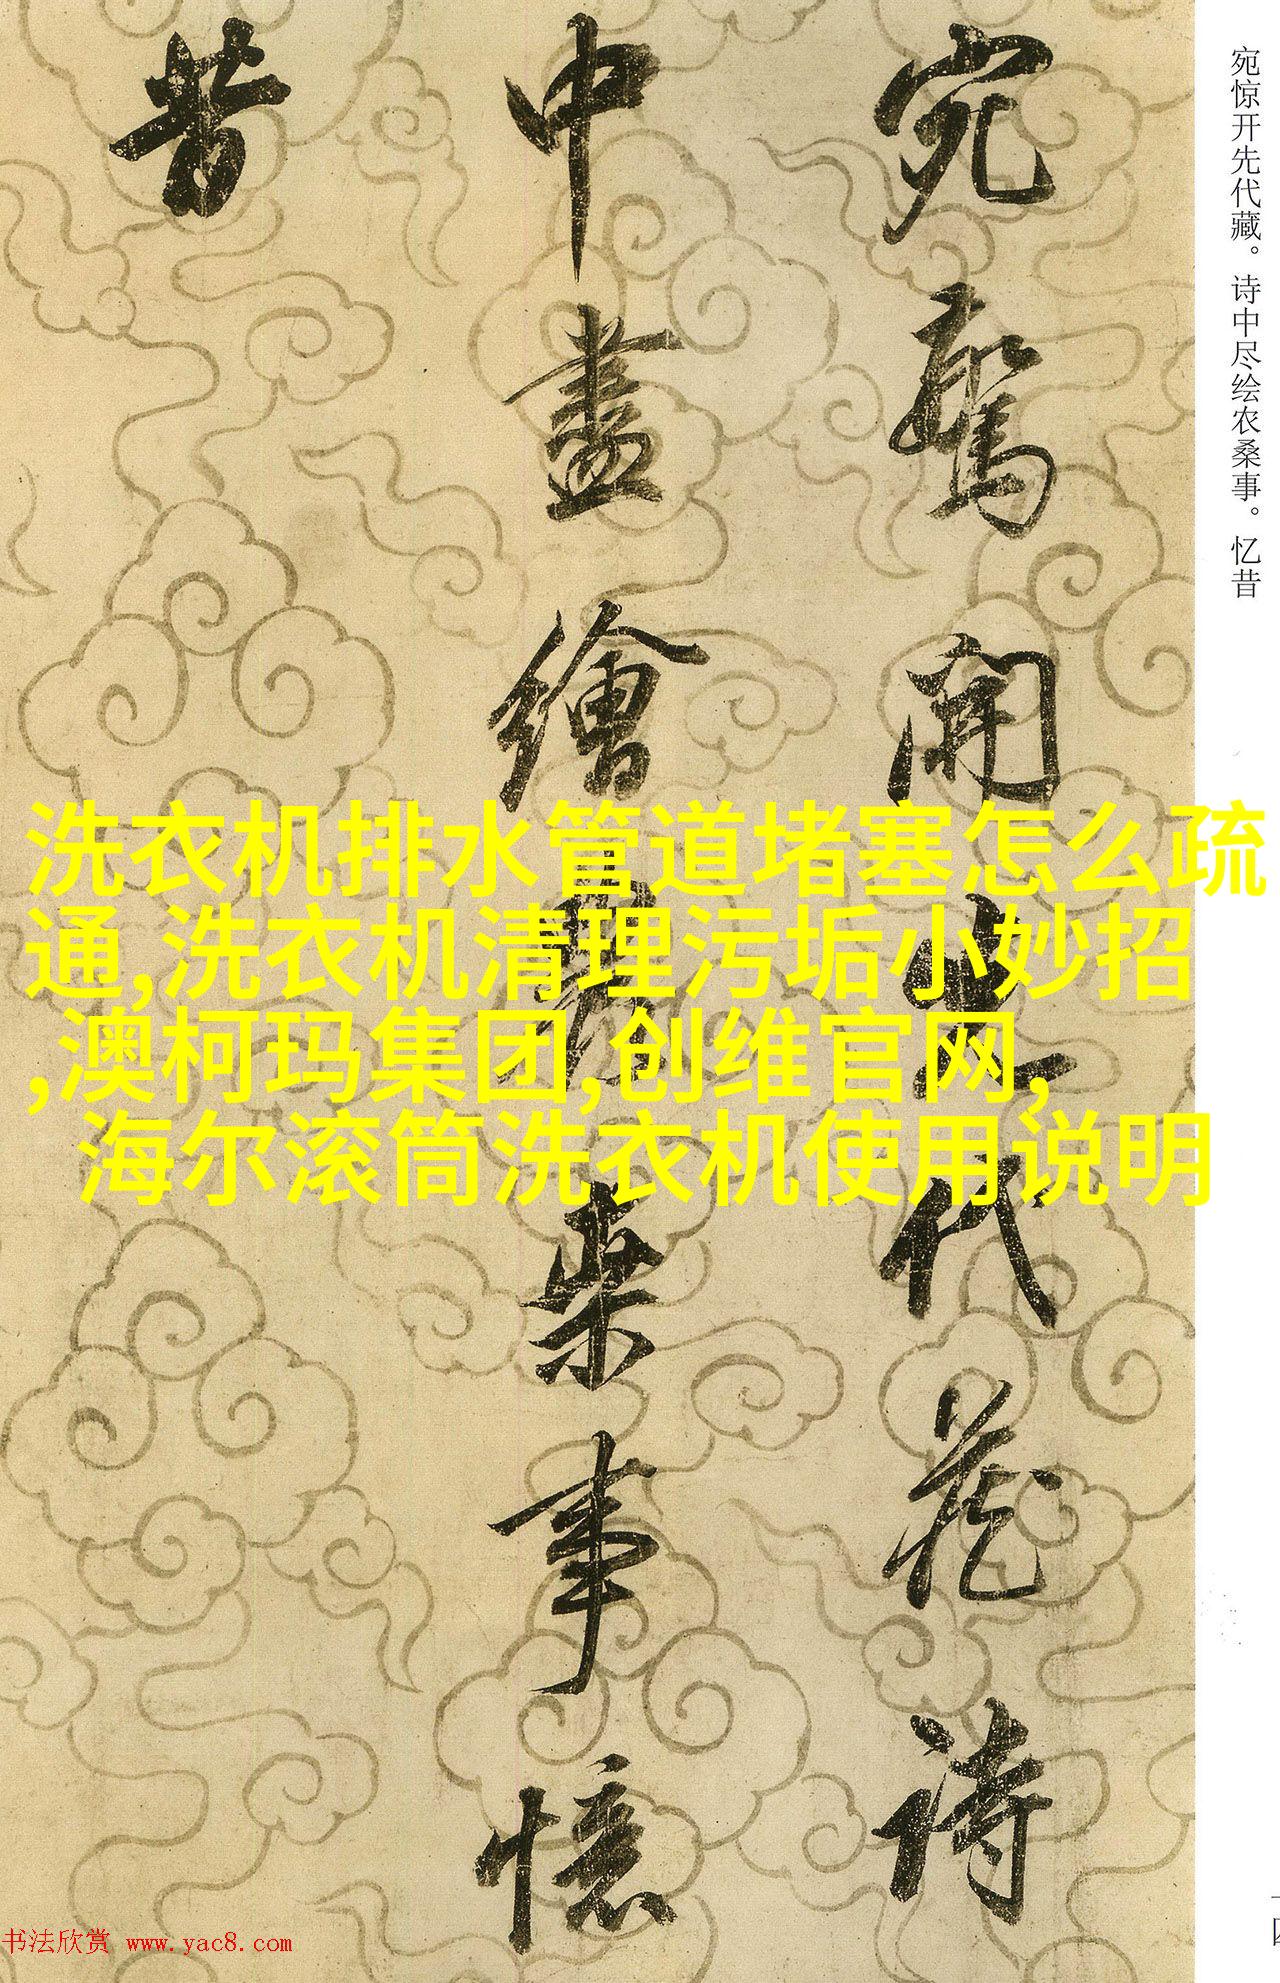 宛驚開先代藏詩
中盡繪農桒事憶
昔
宛惊开先代藏。诗中尽绘农桑事。忆昔
洗衣机排水管道堵塞怎么疏
通,洗衣机清理污垢小妙招
,澳柯玛集团,创维官网,
海尔滚筒洗衣机使用说明
书法欣赏 www.yac8.com